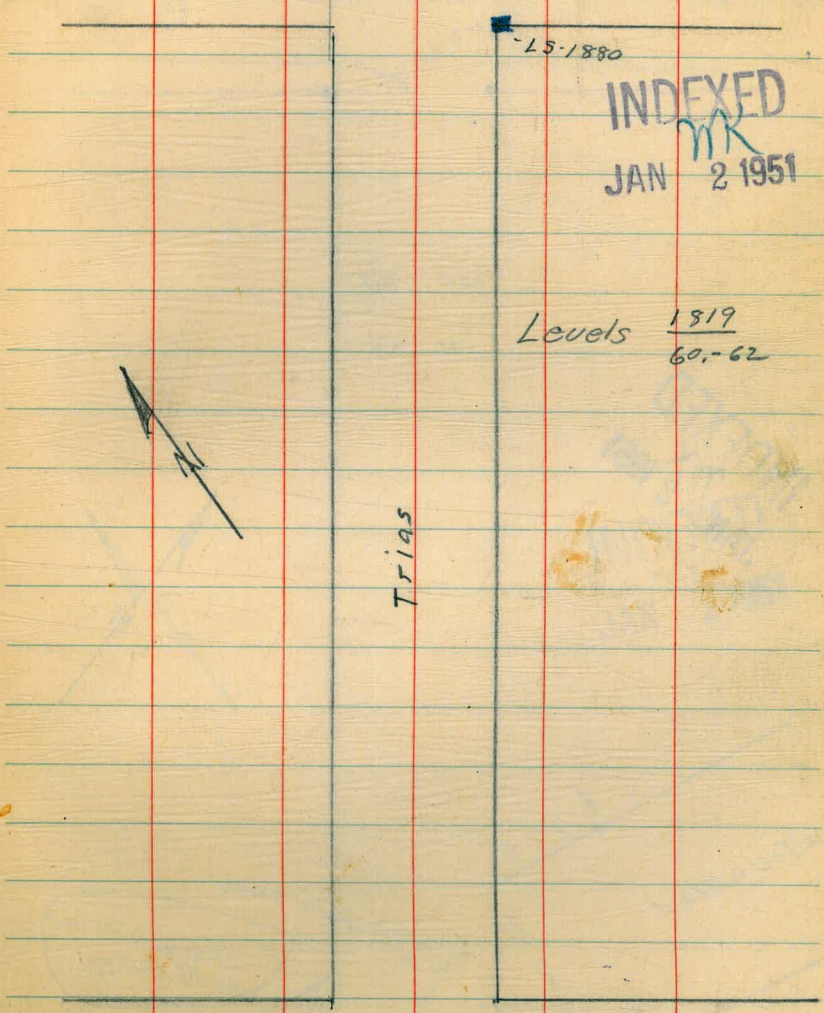 LS-1880
INDEXED
WK
JAN 2 1951
Levels 1819
60.-62
N
Trias